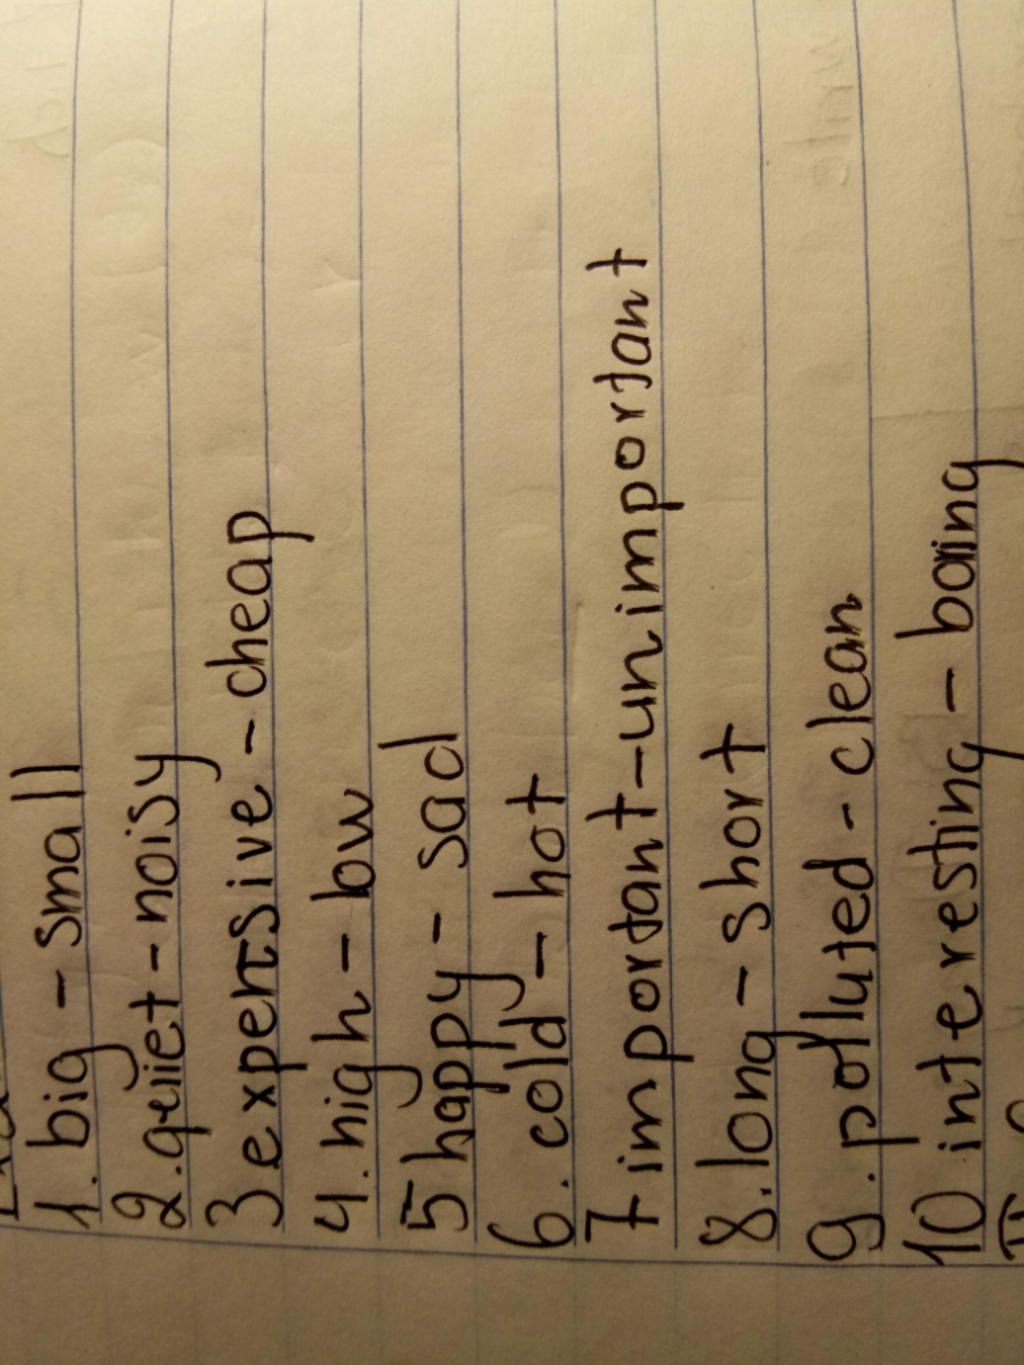 1. big - small
2. quiet - noisy
3 expensive - cheap
4. high - low
5 happy - sad
6. cold - hot
7 important - unimportant
8. long - short
9. polluted - clean
10 interesting - boring